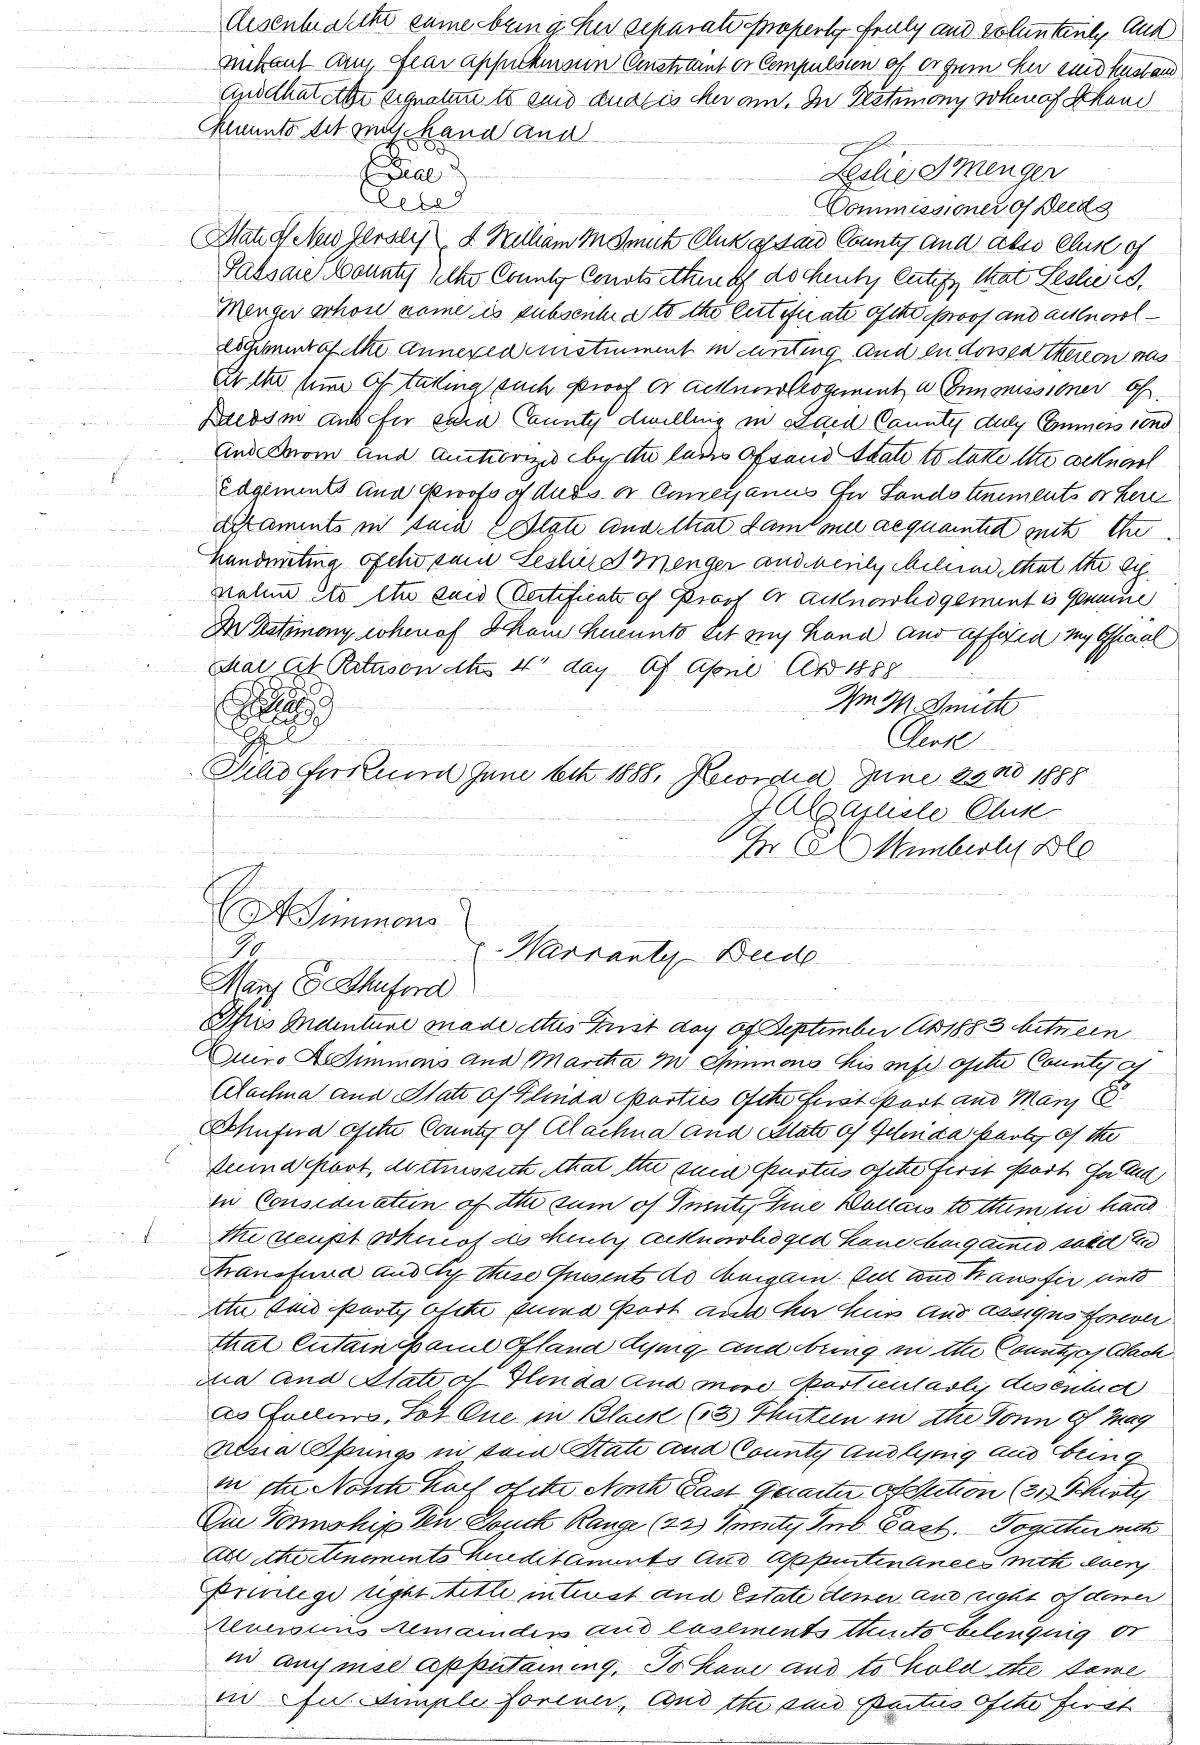 described the same being her separate property freely and voluntarily and
without any fear apprehension Constraint or Compulsion of or from her said husband
and that the signature to said deed is her own. In Testimony whereof I have
hereunto set my hand and
Seal
Leslie S Menger
Commissioner of Deeds
State of New Jersey } I William M Smith Clerk of said County and also Clerk of
Passaic County } the County Courts thereof do hereby Certify that Leslie S.
Menger whose name is subscribed to the Certificate of the proof and acknowl-
edgement of the annexed instrument in writing and endorsed thereon was
at the time of taking such proof or acknowledgement a Commissioner of
Deeds in and for said County dwelling in said County duly Commissiond
and sworn and authorized by the laws of said State to take the acknowl
edgements and proofs of deeds or Conveyances for Lands tenements or here
ditaments in said State and that I am well acquainted with the
handwriting of the said Leslie S Menger and verily believe that the sig
nature to the said Certificate of proof or acknowledgement is genuine
In Testimony whereof I have hereunto set my hand and affixed my official
seal at Paterson the 4" day of April AD 1888
Seal
Wm M. Smith
Clerk
Filed for Record June 16th 1888. Recorded June 22nd 1888
J A Carlisle Clerk
Per Wimberly DC
A Simmons
To } Warranty Deed
Mary E Shuford
This Indenture made this First day of September AD 1883 between
A Simmons and Martha M Simmons his wife of the County of
Alachua and State of Florida parties of the first part and Mary E
Shuford of the County of Alachua and State of Florida party of the
second part, witnesseth that the said parties of the first part for and
in Consideration of the sum of Twenty Five Dollars to them in hand
the receipt whereof is hereby acknowledged have bargained sold and
transfered and by these presents do bargain sell and transfer unto
the said party of the second part and her heirs and assigns forever
that certain parcel of land lying and being in the County of Alach
ua and State of Florida and more particularly described
as follows. Lot One in Block (13) Thirteen in the Town of Mag
nesia Springs in said State and County and lying and being
in the North half of the North East quarter of Section (31) Thirty
One Township Ten South Range (22) Twenty Two East. Together with
all the tenements hereditaments and appurtenances with every
privilege right title interest and Estate dower and right of dower
reversions remainders and easements thereto belonging or
in any wise appertaining. To have and to hold the same
in fee simple forever, and the said parties of the first